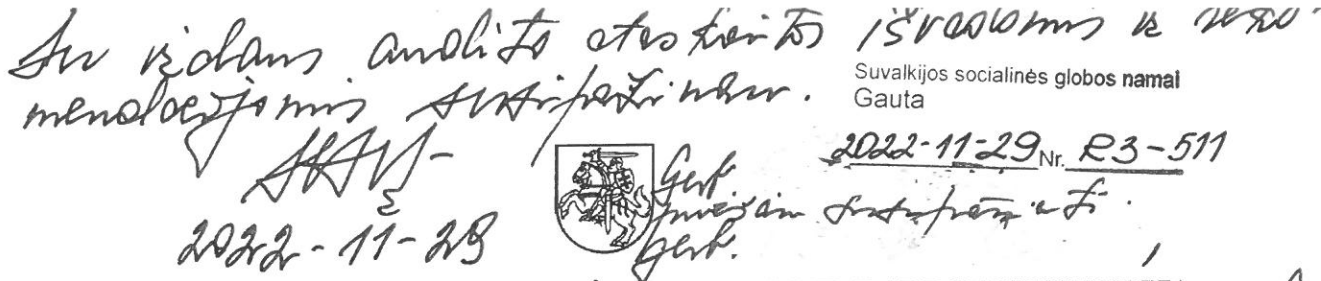 Su vidaus audito ataskaitos išvadomis ir reko-
mendacijomis susipažinau.
2022-11-29
Suvalkijos socialinės globos namai
Gauta
2022-11-29 Nr. R3-511
Gerb.
susipažinti.
Gerb.